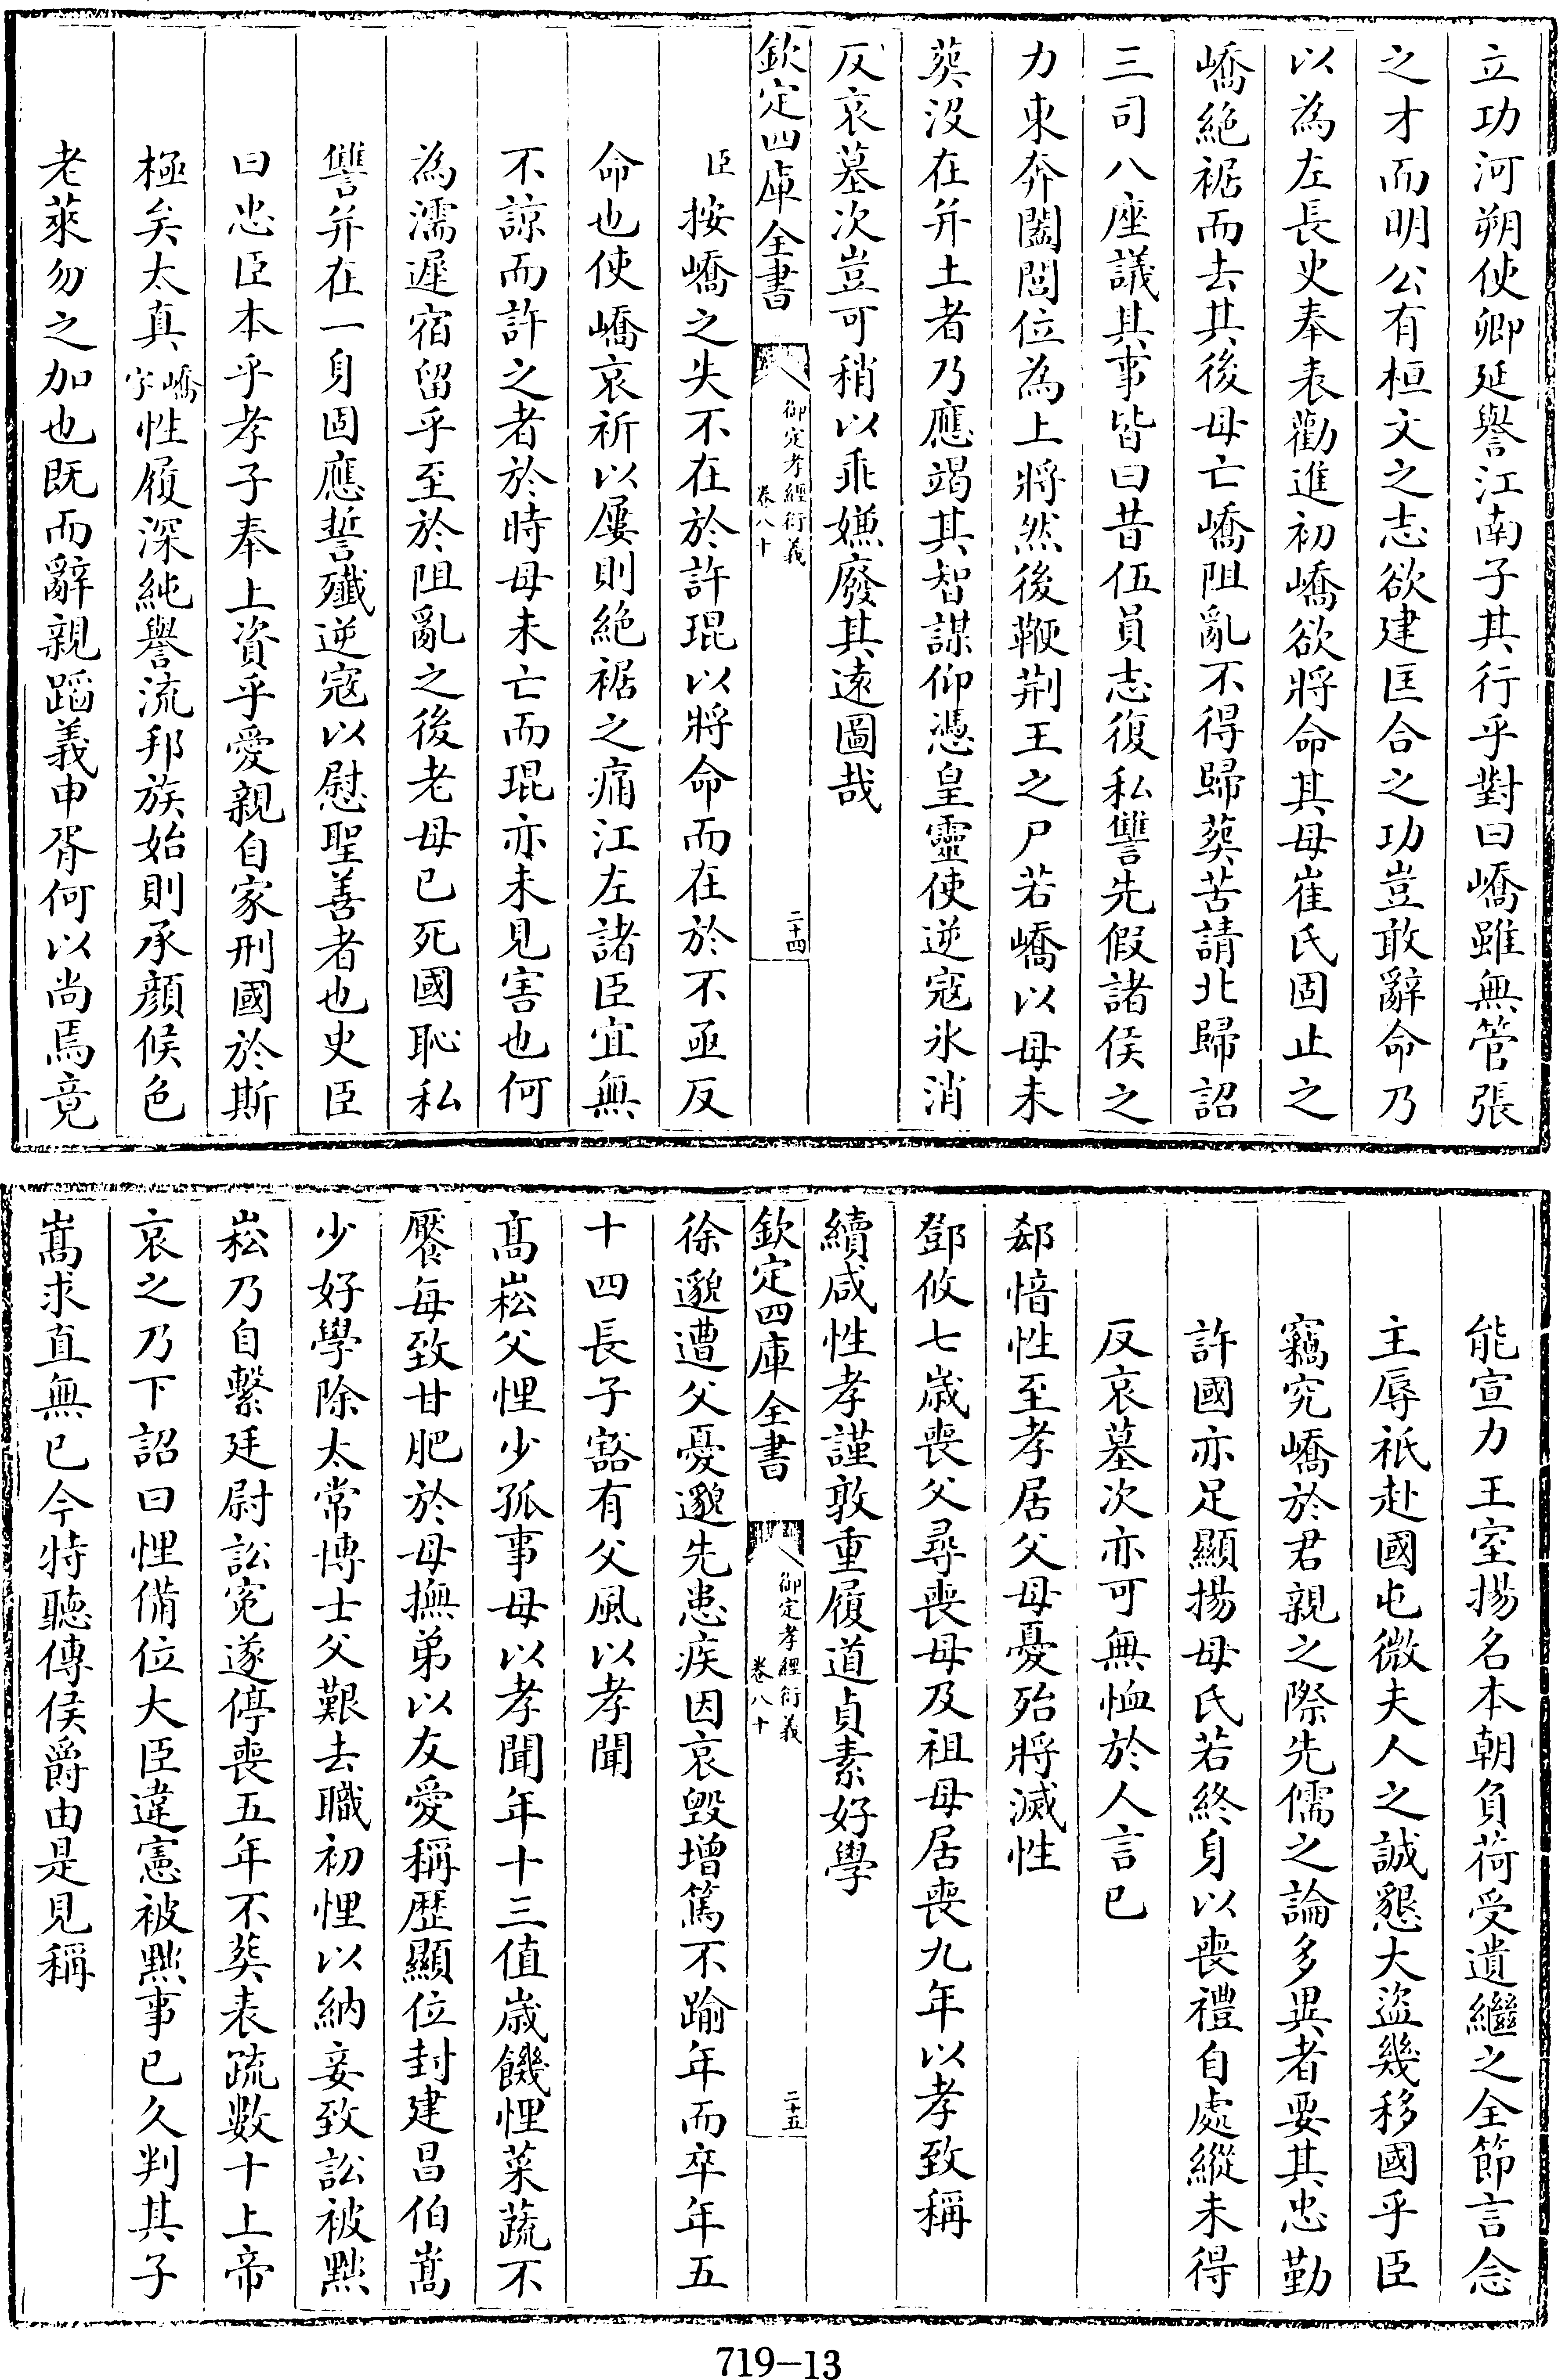 立功河朔使卿延譽江南子其行乎對曰嶠雖無管張
之才而明公有桓文之志欲建匡合之功豈敢辭命乃
以為左長史奉表勸進初嶠欲將命其母崔氏固止之
嶠絶裾而去其後母亡嶠阻亂不得歸葬苦請北歸詔
三司八座議其事皆曰昔伍員志復私讐先假諸侯之
力東奔闔閭位為上將然後鞭荆王之尸若嶠以母未
葬没在并土者乃應竭其智謀仰憑皇靈使逆寇氷消
反哀墓次豈可稍以乖嫌廢其遠圖哉
欽定四庫全書
御定孝經衍義
卷八十
二十四
臣按嶠之失不在於許琨以將命而在於不亟反
命也使嶠哀祈以屢則絶裾之痛江左諸臣宜無
不諒而許之者於時母未亡而琨亦未見害也何
為濡遲宿留乎至於阻亂之後老母已死國恥私
讐并在一身固應誓殲逆寇以慰聖善者也史臣
曰忠臣本乎孝子奉上資乎愛親自家刑國於斯
極矣太真嶠字性履深純譽流邦族始則承顔候色
老萊勿之加也既而辭親蹈義申胥何以尚焉竟
能宣力王室揚名本朝負荷受遺繼之全節言念
主辱祇赴國屯微夫人之誠懇大盜幾移國乎臣
竊究嶠於君親之際先儒之論多異者要其忠勤
許國亦足顯揚母氏若終身以喪禮自處縱未得
反哀墓次亦可無恤於人言已
郄愔性至孝居父母憂殆將滅性
鄧攸七歳喪父尋喪母及祖母居喪九年以孝致稱
續咸性孝謹敦重履道貞素好學
欽定四庫全書
御定孝經衍義
卷八十
二十五
徐邈遭父憂邈先患疾因哀毁增篤不踰年而卒年五
十四長子豁有父風以孝聞
髙崧父悝少孤事母以孝聞年十三值歳饑悝菜蔬不
饜每致甘肥於母撫弟以友愛稱歴顯位封建昌伯嵩
少好學除太常博士父艱去職初悝以納妾致訟被黜
崧乃自繫廷尉訟寃遂停喪五年不葬表疏數十上帝
哀之乃下詔曰悝備位大臣違憲被黜事已久判其子
嵩求直無已今特聽傳侯爵由是見稱
719-13